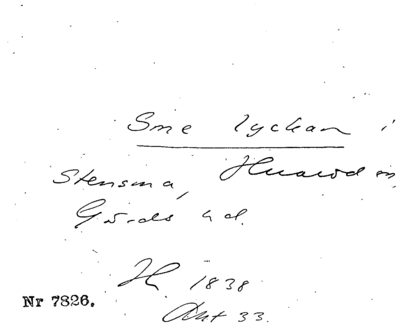 Sme lyckan i
Stensma, Hvarod sn,
Gärds hd.
1838
Nr 7826.
Akt 33.